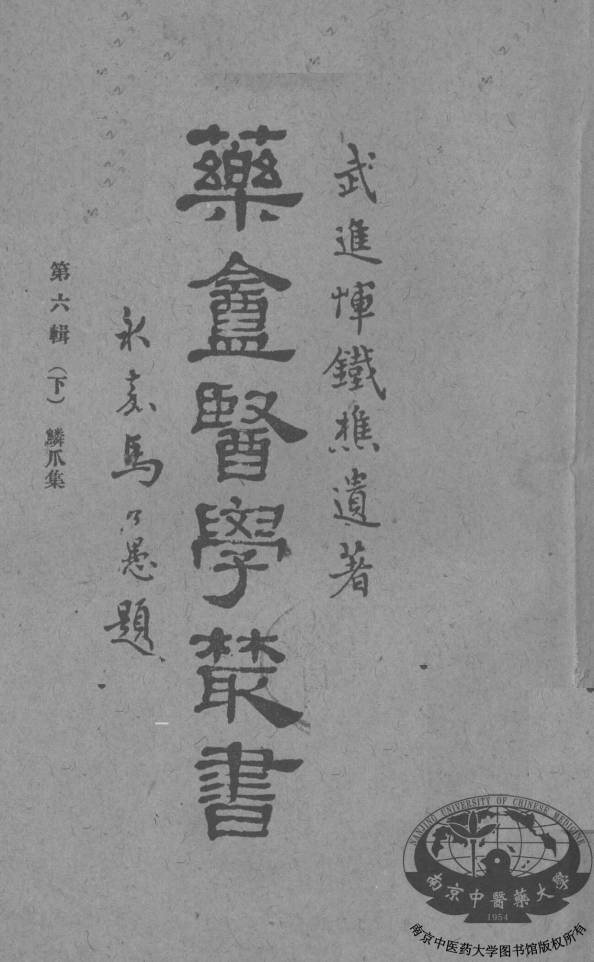 武進惲鐵樵遺著
藥盦醫學叢書
永嘉馬公愚題
第六輯（下）鱗爪集
NANJING UNIVERSITY OF CHINESE MEDICINE
南京中醫藥大學
1954
南京中医药大学图书馆版权所有